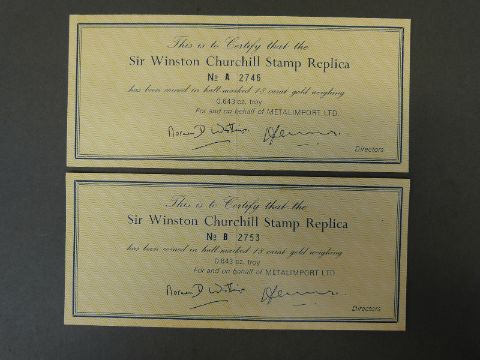 This is to Certify that the
Sir Winston Churchill Stamp Replica
No A 2746
has been coined in hall-marked 18 carat gold weighing
0.643 oz. troy
For and on behalf of METALIMPORT LTD.
Directors
This is to Certify that the
Sir Winston Churchill Stamp Replica
No B 2753
has been coined in hall-marked 18 carat gold weighing
0.643 oz. troy
For and on behalf of METALIMPORT LTD.
Directors